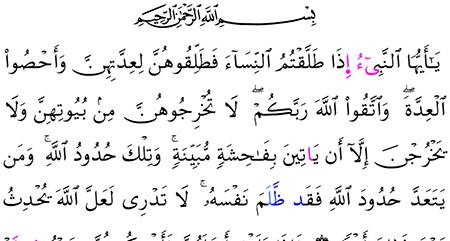 بِسْمِ اللَّهِ الرَّحْمَٰنِ الرَّحِيمِ
يَٰٓأَيُّهَا اَ۬لنَّبِےٓءُ إِذَا طَلَّقْتُمُ اُ۬لنِّسَآءَ فَطَلِّقُوهُنَّ لِعِدَّتِهِنَّ وَأَحْصُواْ
اُ۬لْعِدَّةَۖ وَاتَّقُواْ اُ۬للَّهَ رَبَّكُمْۖ لَا تُخْرِجُوهُنَّ مِنۢ بُيُوتِهِنَّ وَلَا
يَخْرُجْنَ إِلَّآ أَن يَاتِينَ بِفَٰحِشَةٖ مُّبَيِّنَةٖۚ وَتِلْكَ حُدُودُ اُ۬للَّهِۚ وَمَن
يَتَعَدَّ حُدُودَ اَ۬للَّهِ فَقَد ظَّلَمَ نَفْسَهُۥۚ لَا تَدْرِى لَعَلَّ اَ۬للَّهَ يُحْدِثُ